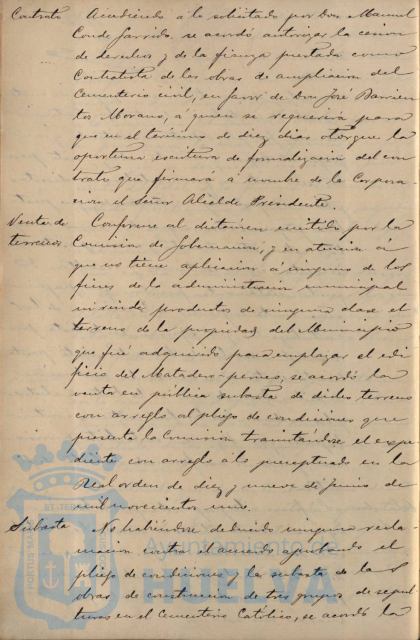 Contrato Accediendo á lo solicitado por Don Manuel
Conde Garrido, se acordó autorizar la cesion
de derechos y de la fianza prestada como
Contratista de las obras de ampliacion del
Cementerio civil, en favor de Don José Barrien
tos Morano, á quien se requerirá para
que en el término de diez dias otorgue la
oportuna escritura de formalización del con
trato que firmará á nombre de la Corpora
cion el Señor Alcalde Presidente.
Venta de Conforme al dictámen emitido por la
terrenos. Comision de Gobernacion, y en atencion á
que no tiene aplicacion á ninguno de los
fines de la administracion municipal
ni rinde productos de ninguna clase el
terreno de la propiedad del Municipio
que fué adquirido para emplazar el edi
ficio del Matadero, se acordó la
venta en pública subasta de dicho terreno
con arreglo al pliego de condiciones que
presenta la Comision tramitándose el expe
diente con arreglo á lo preceptuado en la
Real orden de diez y nueve de Junio de
mil novecientos uno.
Subasta No habiéndose deducido ninguna recla
macion contra el acuerdo aprobando el
pliego de condiciones y la subasta de las
obras de construccion de tres grupos de sepul
turas en el Cementerio Católico, se acordó la
Ayuntamiento de
HUELVA